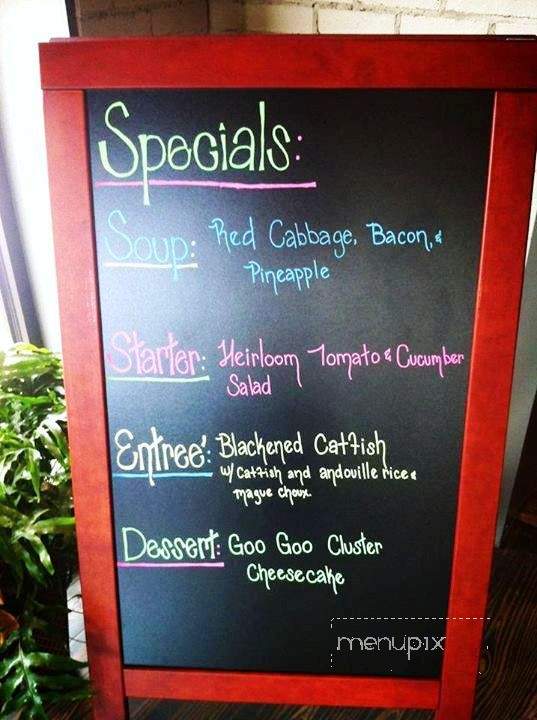 Specials:
Soup: Red Cabbage, Bacon, &
Pineapple
Starter: Heirloom Tomato & Cucumber
Salad
Entree': Blackened Catfish
w/ Catfish and andouille rice &
mague choux.
Dessert: Goo Goo Cluster
Cheesecake
menupix